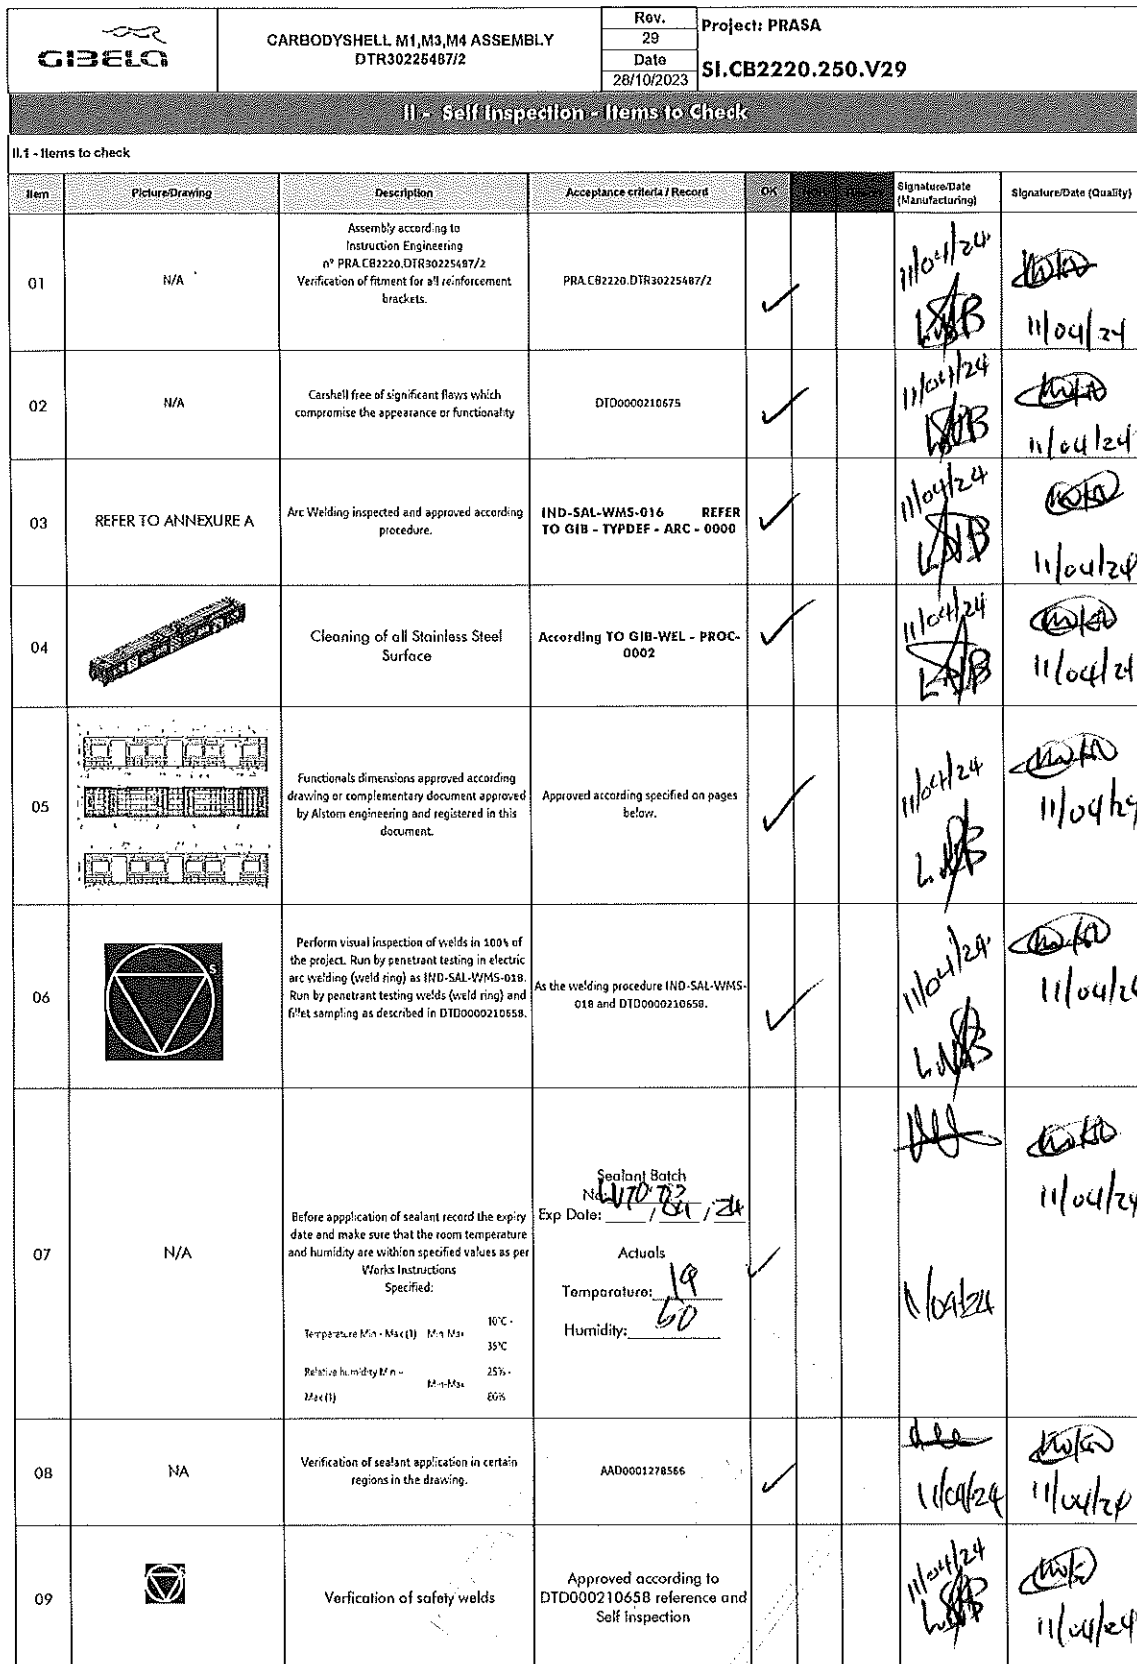 GIBELA
CARBODYSHELL M1,M3,M4 ASSEMBLY
DTR30225487/2
Rev.
29
Date
28/10/2023
Project: PRASA
SI.CB2220.250.V29
II - Self Inspection - Items to Check
II.1 - Items to check
Item
Picture/Drawing
Description
Acceptance criteria / Record
OK
Signature/Date
(Manufacturing)
Signature/Date (Quality)
01
N/A
Assembly according to
Instruction Engineering
nº PRA.CB2220.DTR30225487/2
Verification of fitment for all reinforcement
brackets.
PRA.CB2220.DTR30225487/2
11/04/24
11/04/24
02
N/A
Carshell free of significant flaws which
compromise the appearance or functionality
DTD0000210675
11/04/24
11/04/24
03
REFER TO ANNEXURE A
Arc Welding inspected and approved according
procedure.
IND-SAL-WMS-016 REFER
TO GIB - TYPDEF - ARC - 0000
11/04/24
11/04/24
04
Cleaning of all Stainless Steel
Surface
According TO GIB-WEL - PROC-
0002
11/04/24
11/04/24
05
Functionals dimensions approved according
drawing or complementary document approved
by Alstom engineering and registered in this
document.
Approved according specified on pages
below.
11/04/24
11/04/24
06
S
Perform visual inspection of welds in 100% of
the project. Run by penetrant testing in electric
arc welding (weld ring) as IND-SAL-WMS-018.
Run by penetrant testing welds (weld ring) and
fillet sampling as described in DTD0000210658.
As the welding procedure IND-SAL-WMS-
018 and DTD0000210658.
11/04/24
11/04/24
07
N/A
Before appplication of sealant record the expiry
date and make sure that the room temperature
and humidity are withion specified values as per
Works Instructions
Specified:
Temperature Min - Max (1) Min Max 10°C -
35°C
Relative humidity Min -
Max (1) Min-Max 25% -
80%
Sealant Batch
No:
Exp Date: / 04 / 24
Actuals
Temperature: 19
Humidity: 60
11/04/24
11/04/24
08
NA
Verification of sealant application in certain
regions in the drawing.
AAD0001278566
11/04/24
11/04/24
09
Verfication of safety welds
Approved according to
DTD000210658 reference and
Self Inspection
11/04/24
11/04/24